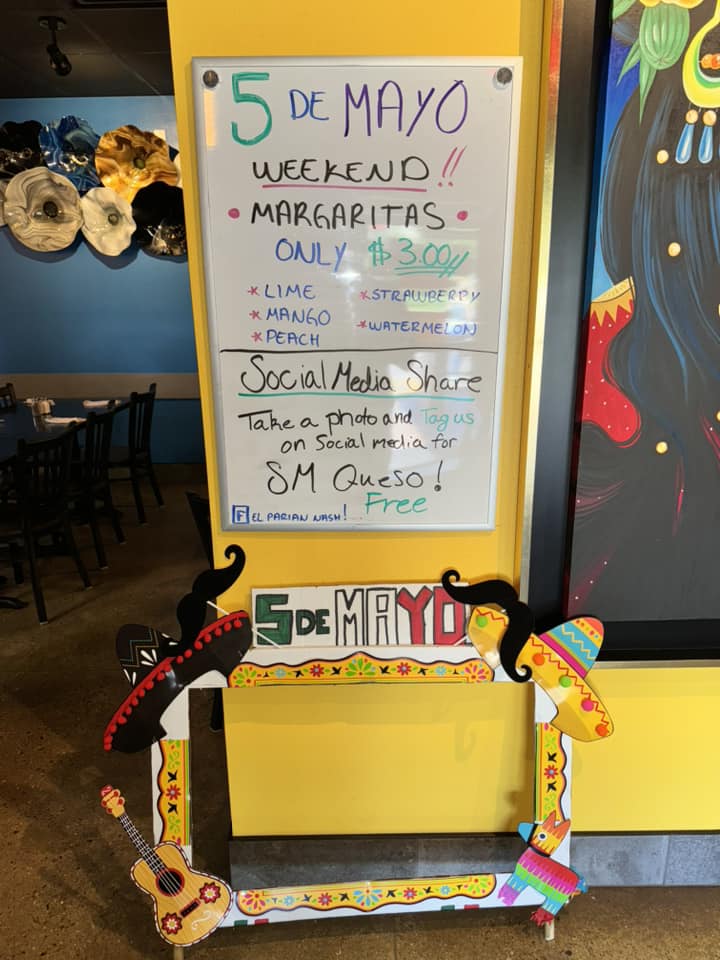 5 DE MAYO
WEEKEND!!
• MARGARITAS •
ONLY $3.00
* LIME * STRAWBERRY
* MANGO * WATERMELON
* PEACH
Social Media Share
Take a photo and Tag us
on Social media for
SM Queso!
Free
F EL PARIAN NASH!
5 DE MAYO